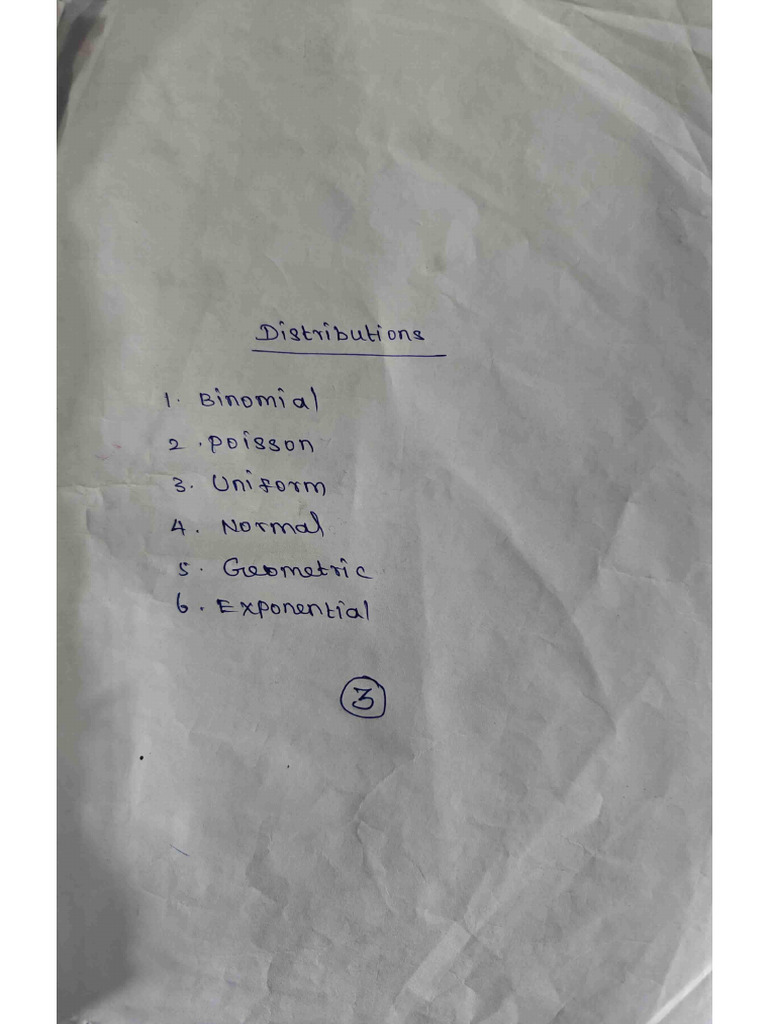 Distributions
1. Binomial
2. Poisson
3. Uniform
4. Normal
5. Geometric
6. Exponential
3